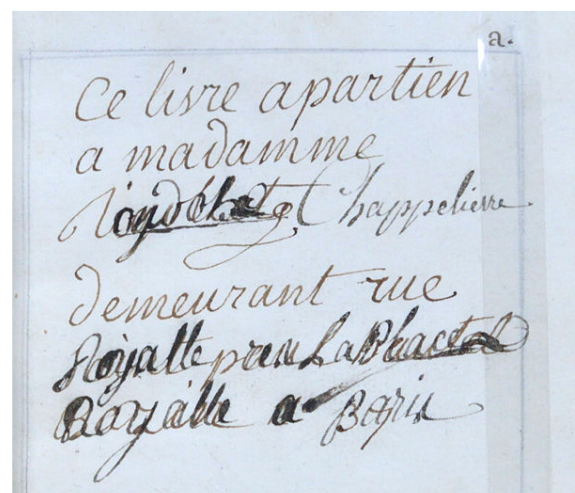 a.
Ce livre apartien
a madamme
Chappelierre
demeurant rue
Royalle pres La Place
Royalle a Paris